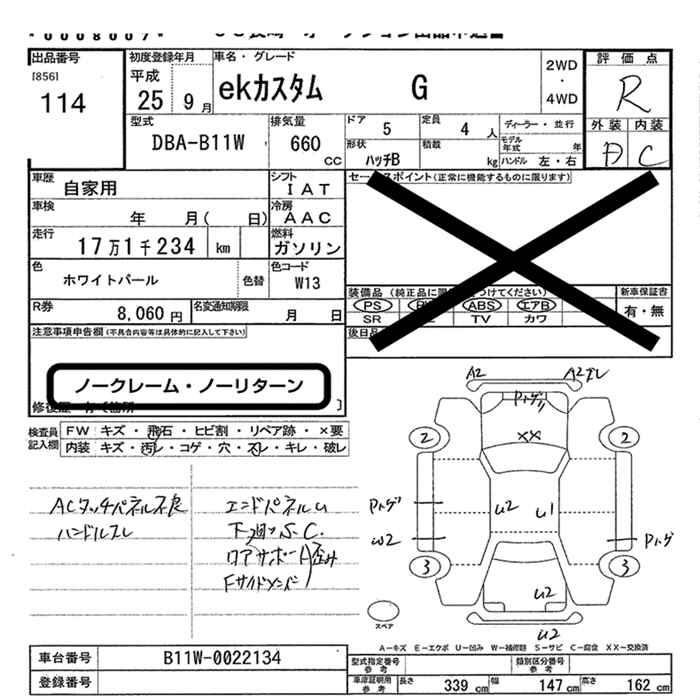 *0008007*
出品番号
[856]
114
初度登録年月
平成
25 9月
車名・グレード
ekカスタム G
2WD
・
4WD
評価点
R
外装 内装
D C
型式
DBA-B11W
排気量
660
CC
ドア
5
定員
4 人
ディーラー・並行
形状
ハッチB
積載
kg
モデル年式
年
ハンドル 左・右
車歴
自家用
シフト
IAT
車検
年 月( 日)
冷房
AAC
走行
17万1千234 km
燃料
ガソリン
色
ホワイトパール
色替
色コード
W13
R券
8,060円
名変通知期限
月 日
セールスポイント(正常に機能するものに限ります)
装備品(純正品に限
つけてください)
PS
ABS
エアB
SR
TV
カワ
新車保証書
有・無
後日品
注意事項申告欄(不具合内容等は具体的に記入して下さい)
ノークレーム・ノーリターン
検査員
記入欄
FW キズ・飛石・ヒビ割・リペア跡・×要
内装 キズ・汚レ・コゲ・穴・スレ・キレ・破レ
ACタッチパネル不良
ハンドルスレ
エンドパネルU
下廻りS.C.
コアサポート歪み
Fサイドメンバ
A2
A2ズレ
Pハゲ
XX
2
2
Pハゲ
U2
U1
W2
Pハゲ
3
3
U2
U2
スペア
A-キズ E-エクボ U-凹み W-補修跡 S-サビ C-腐食 XX-交換済
車台番号
B11W-0022134
登録番号
型式指定番号
参考
類別区分番号
参考
車庫証明用
参考
長さ
339 cm
幅
147 cm
高さ
162 cm